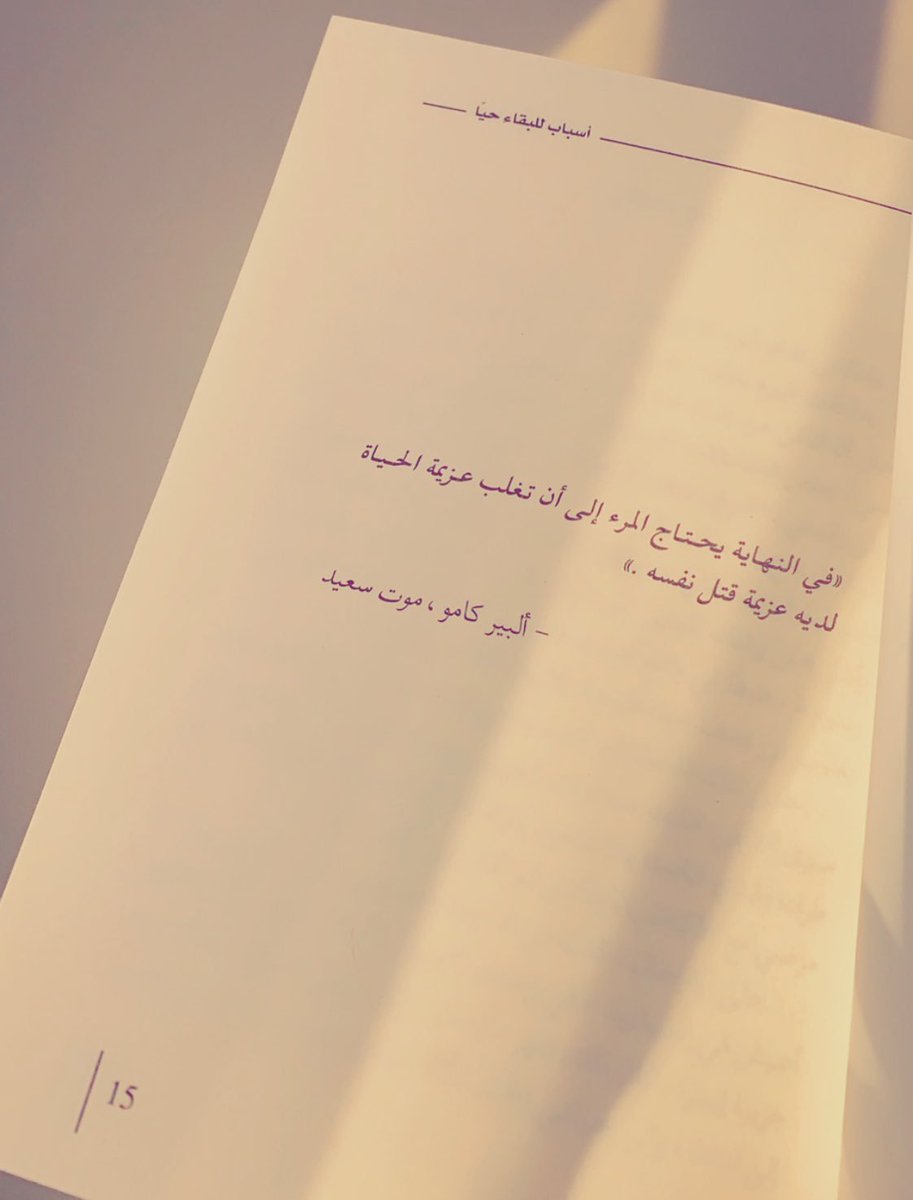 أسباب للبقاء حيًا
«في النهاية يحتاج المرء إلى أن تغلب عزيمة الحياة
لديه عزيمة قتل نفسه .»
- ألبير كامو ، موت سعيد
15